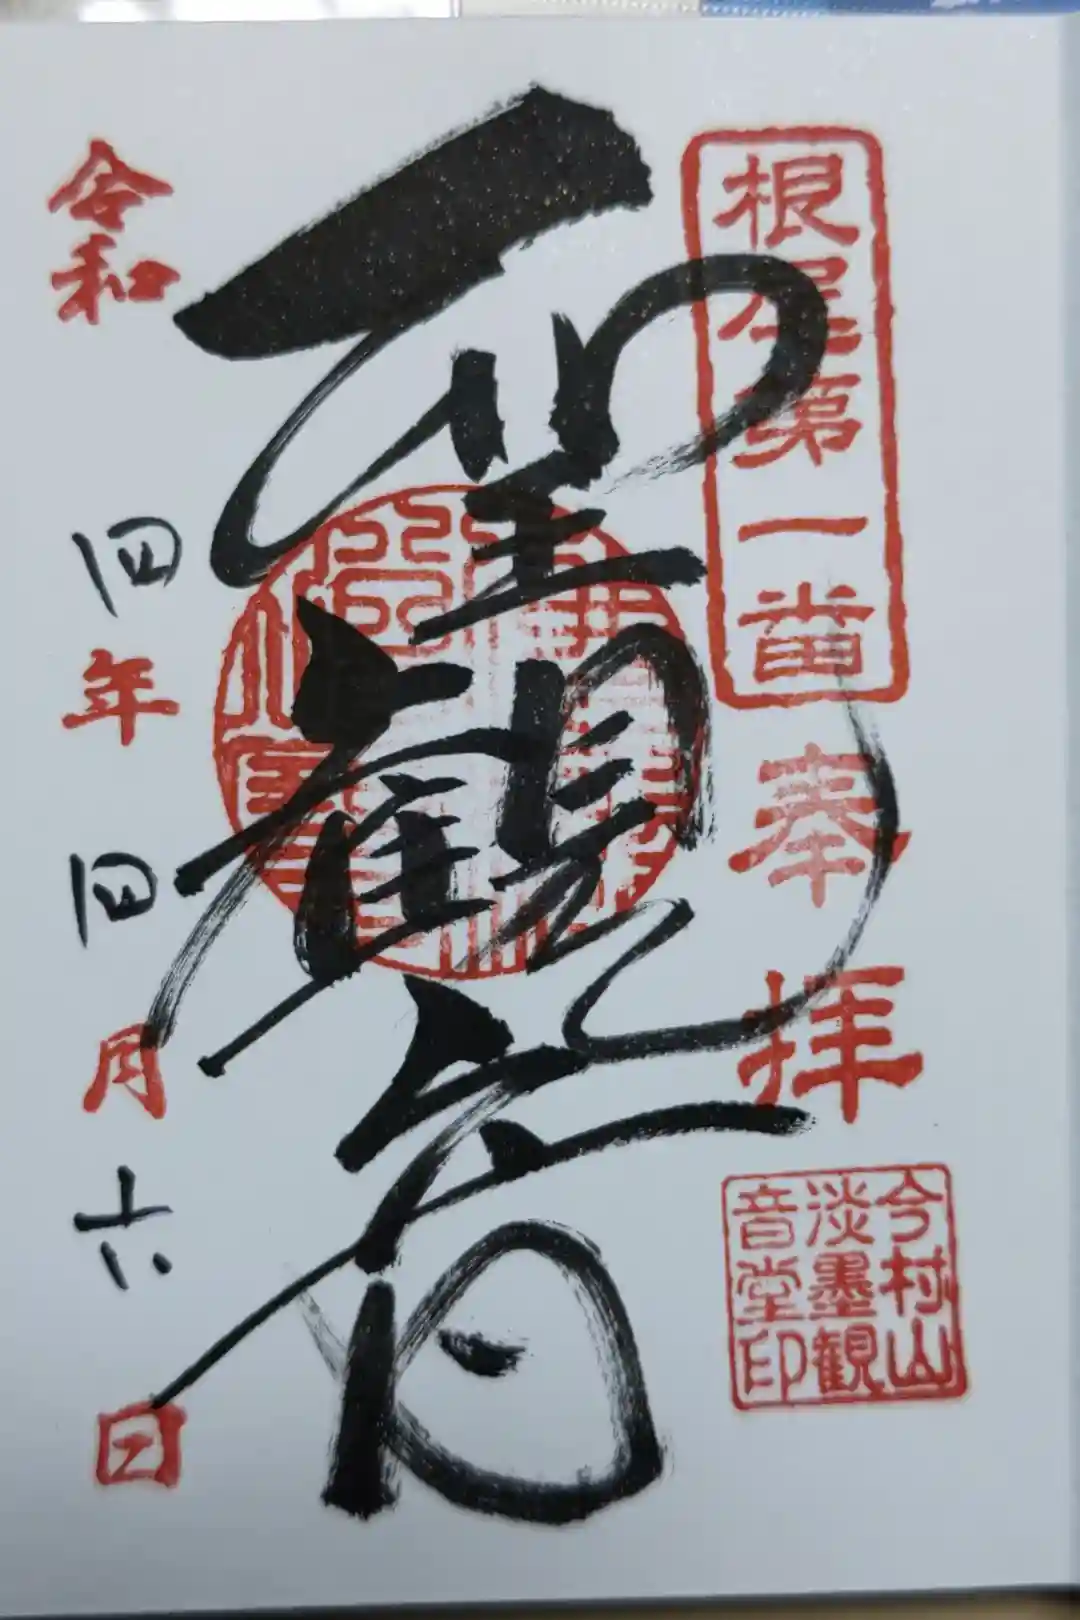 根尾第一番
奉拝
聖観音
今村山
淡墨観
音堂印
令和四年四月六日